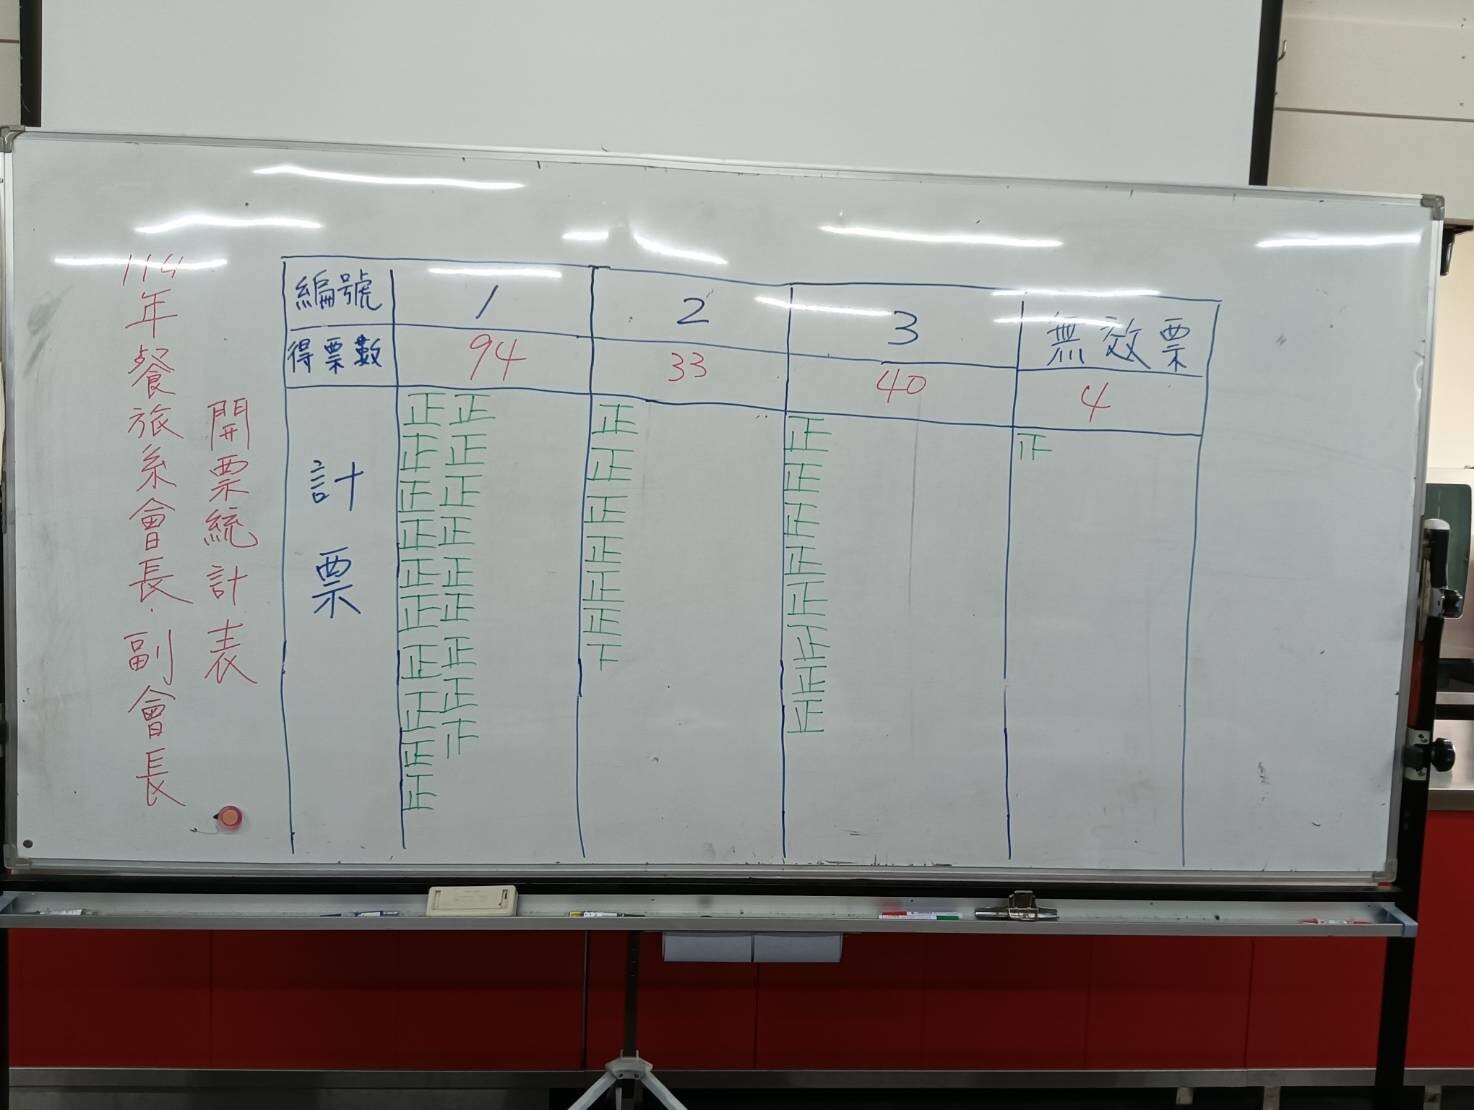 114年餐旅系會長.副會長
開票統計表
編號 1 2 3 無效票
得票數 94 33 40 4
計票
正正 正 正 正
正正 正 正
正正 正 正
正正 正 正
正正 正 正
正正 正 正
正正 下 正
正正 正
正正
正